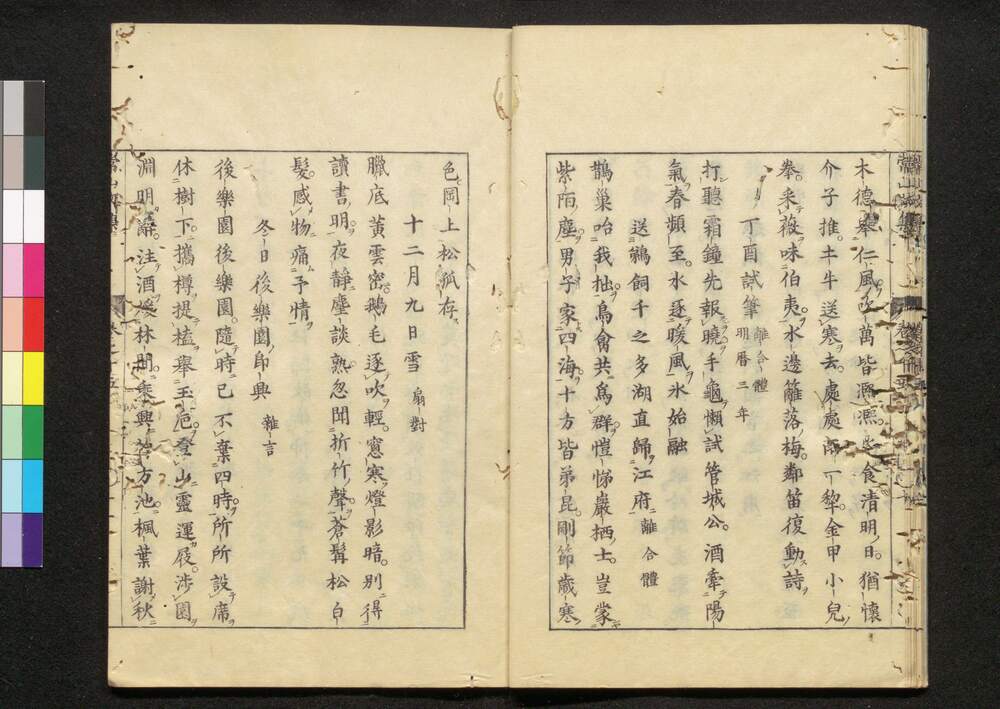 木德舉仁風化萬皆濕濕煦食清明日猶懷
介子推土牛牛送寒去處處師一犂金甲小兒
拳采薇味伯夷水邊籬落梅鄰笛復動詩
丁酉試筆 離合體 明曆三年
打聽霜鐘先報曉手龜懶試管城公酒牽陽
氣春頻至水逐暖風氷始融
送鵜飼千之多湖直歸江府 離合體
鵲巢咍我拙鳥禽共爲群愷悌巖栖士豈蒙
紫陌塵男子家四海十方皆弟昆剛節歲寒
色岡上松孤存
十二月九日雪 扇對
臘底黃雲密鵝毛逐吹輕窓寒燈影暗別得
讀書明夜靜麈談熟忽聞折竹聲蒼髯松白
髮感物痛予情
冬日後樂園即興 雜言
後樂園後樂園隨時已不棄四時所所設席
休樹下攜樽提榼舉玉巵登山靈運屐涉園
淵明辭注酒煖林間乘興 方池楓葉謝秋